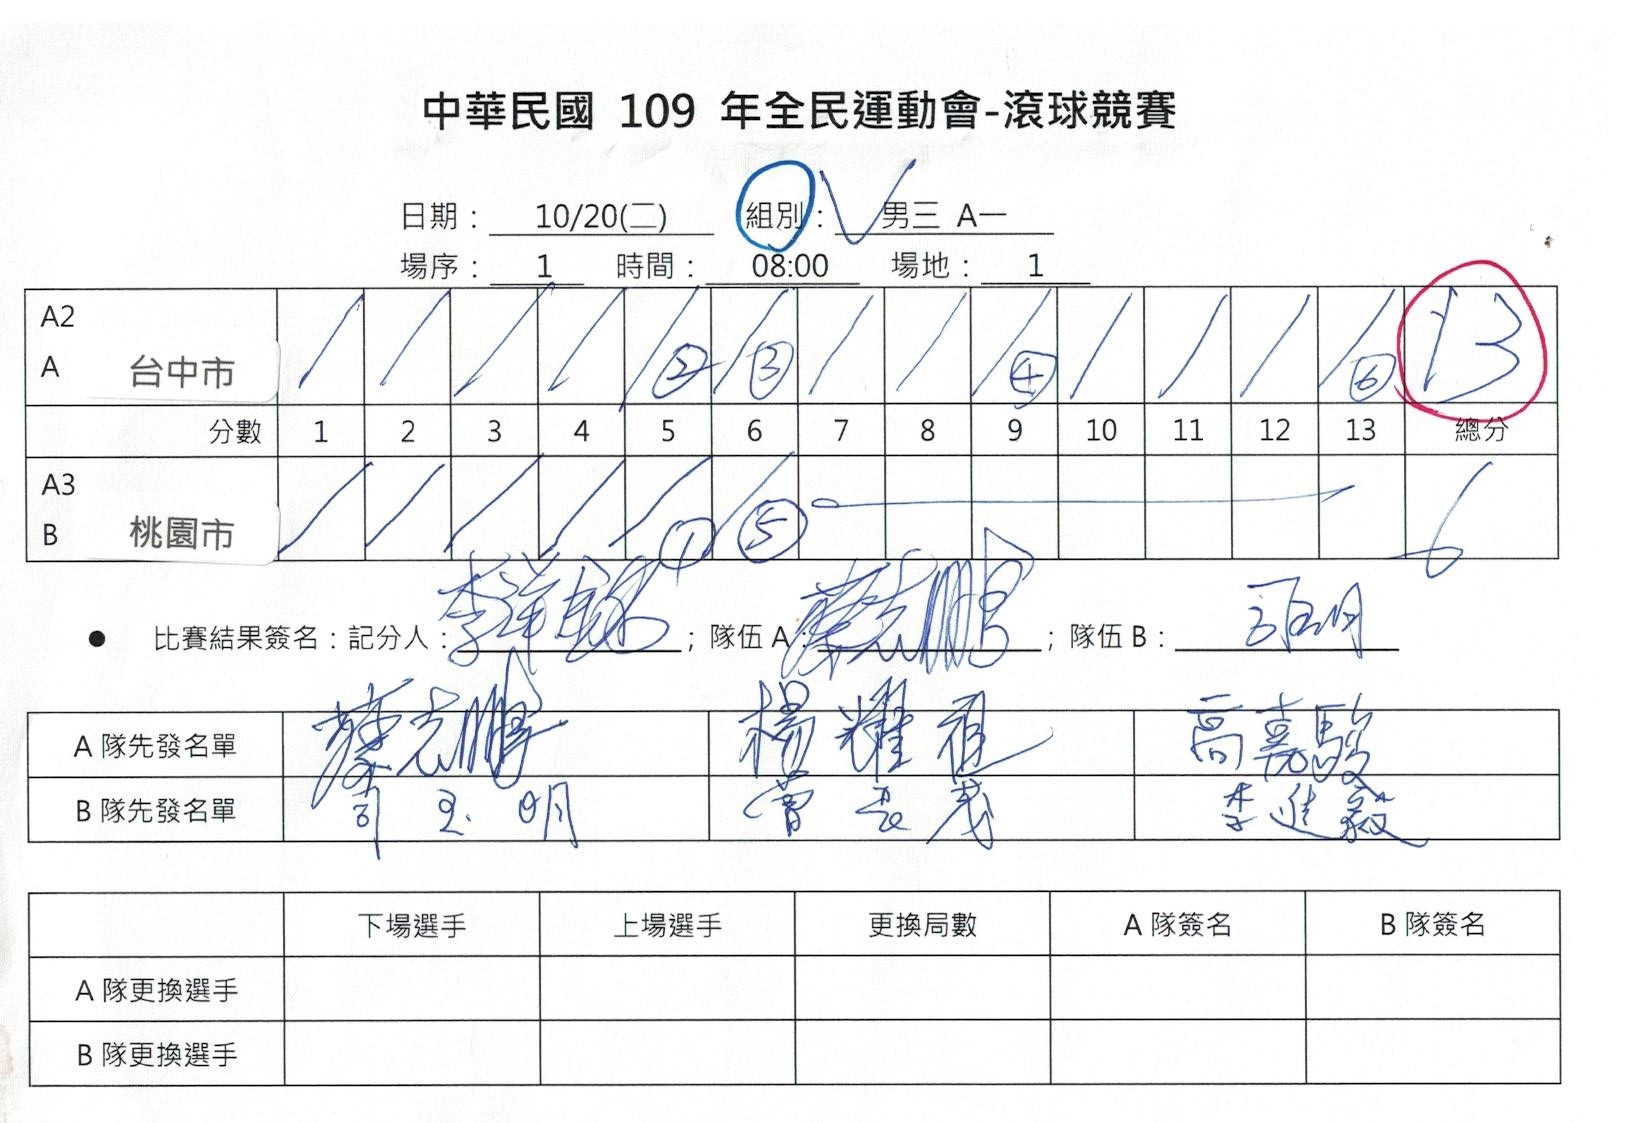 中華民國 109 年全民運動會-滾球競賽
日期： 10/20(二) 組別： 男三 A一
場序： 1 時間： 08:00 場地： 1
A2
A 台中市 ② ③ ④ ⑥ 13
分數 1 2 3 4 5 6 7 8 9 10 11 12 13 總分
A3
B 桃園市 ① ⑤ 6
● 比賽結果簽名：記分人： ；隊伍 A： ；隊伍 B：
A 隊先發名單 楊耀 高嘉駿
B 隊先發名單 明 李進毅
下場選手 上場選手 更換局數 A 隊簽名 B 隊簽名
A 隊更換選手
B 隊更換選手